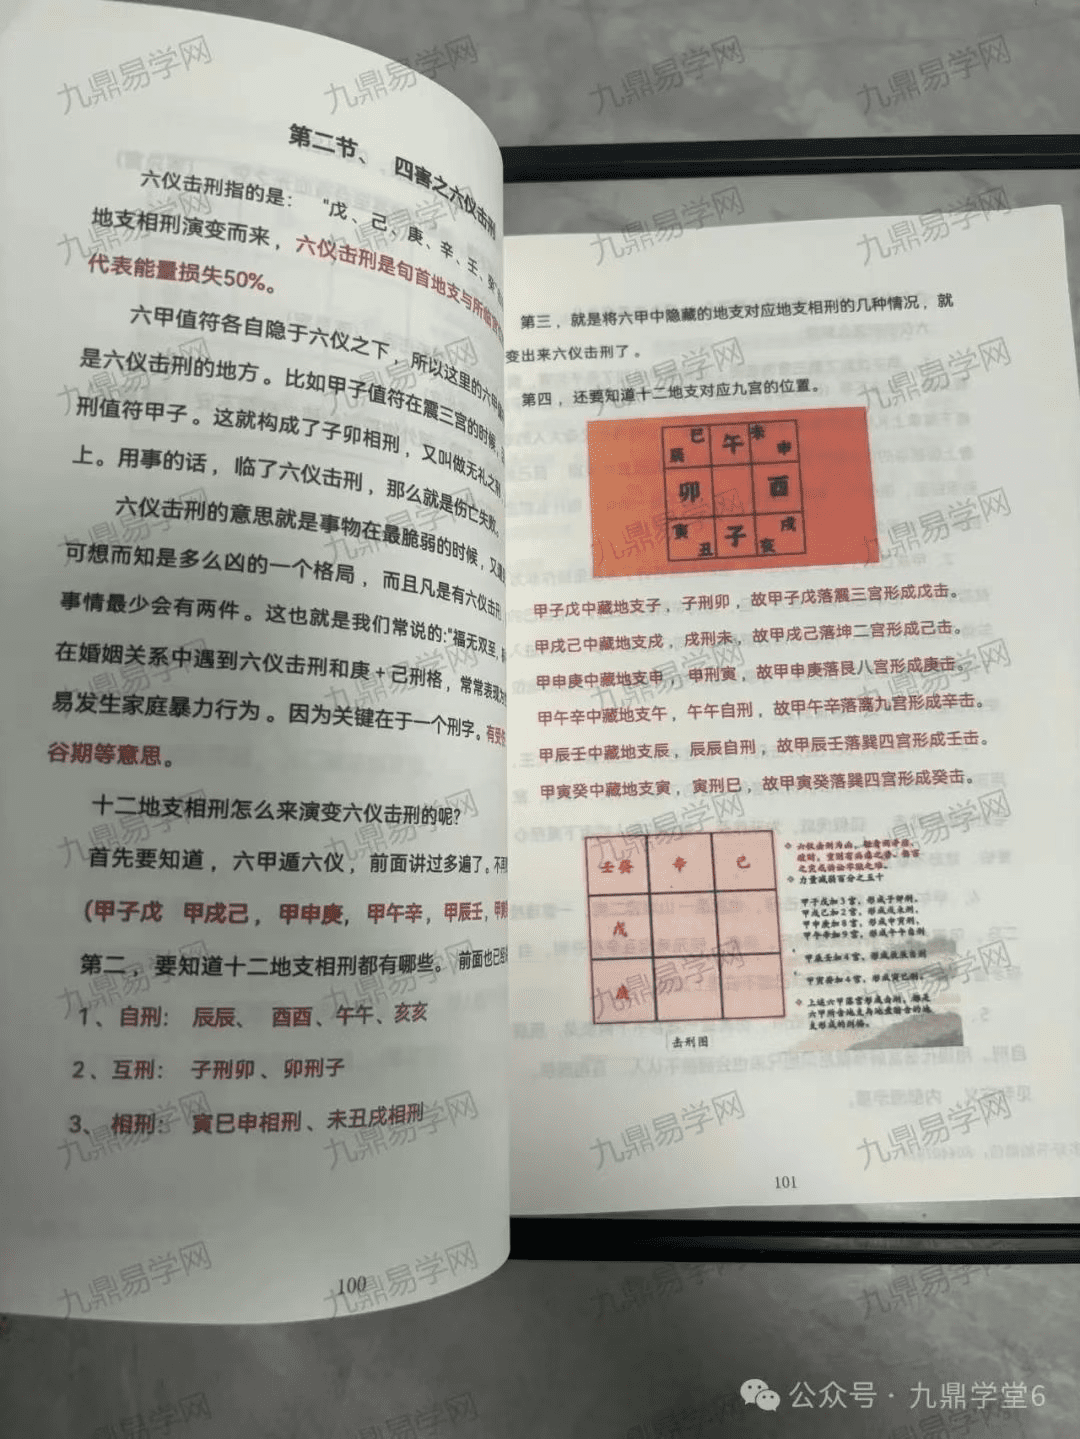 第二节、 四害之六仪击刑
六仪击刑指的是: "戊、己、庚、辛、壬、癸"
地支相刑演变而来，六仪击刑是旬首地支与所临宫
代表能量损失50%。
六甲值符各自隐于六仪之下，所以这里的六甲
是六仪击刑的地方。比如甲子值符在震三宫的时候，
刑值符甲子。这就构成了子卯相刑，又叫做无礼之刑，
上。用事的话，临了六仪击刑，那么就是伤亡失败。
六仪击刑的意思就是事物在最脆弱的时候，又
可想而知是多么凶的一个格局，而且凡是有六仪击刑
事情最少会有两件。这也就是我们常说的:"福无双至，
在婚姻关系中遇到六仪击刑和庚+己刑格，常常表现为
易发生家庭暴力行为。因为关键在于一个刑字。有受
谷期等意思。
十二地支相刑怎么来演变六仪击刑的呢?
首先要知道，六甲遁六仪，前面讲过多遍了。不
(甲子戊 甲戌己，甲申庚，甲午辛，甲辰壬，甲
第二，要知道十二地支相刑都有哪些。前面也已
1、自刑: 辰辰、 酉酉、午午、亥亥
2、互刑: 子刑卯、卯刑子
3、相刑: 寅巳申相刑、未丑戌相刑
100
第三，就是将六甲中隐藏的地支对应地支相刑的几种情况，就
变出来六仪击刑了。
第四，还要知道十二地支对应九宫的位置。
巳 午 未
辰 申
卯 酉
寅 子 戌
丑 亥
甲子戊中藏地支子，子刑卯，故甲子戊落震三宫形成戊击。
甲戌己中藏地支戌，戌刑未，故甲戌己落坤二宫形成己击。
甲申庚中藏地支申，申刑寅，故甲申庚落艮八宫形成庚击。
甲午辛中藏地支午，午午自刑，故甲午辛落离九宫形成辛击。
甲辰壬中藏地支辰，辰辰自刑，故甲辰壬落巽四宫形成壬击。
甲寅癸中藏地支寅，寅刑巳，故甲寅癸落巽四宫形成癸击。
壬癸 辛 己
戊
庚
击刑图
力量减弱百分之五十
甲子戊加3宫，形成子卯刑。
甲戌己加2宫，形成戌未刑。
甲申庚加8宫，形成申寅刑。
甲午辛加9宫，形成午午自刑
甲辰壬加4宫，形成辰辰自刑
甲寅癸加4宫，形成寅巳刑。
上述六甲落宫形成击刑，都是
六甲所含地支与地盘暗含的地
支形成的刑格。
101
九鼎易学网
公众号·九鼎学堂6